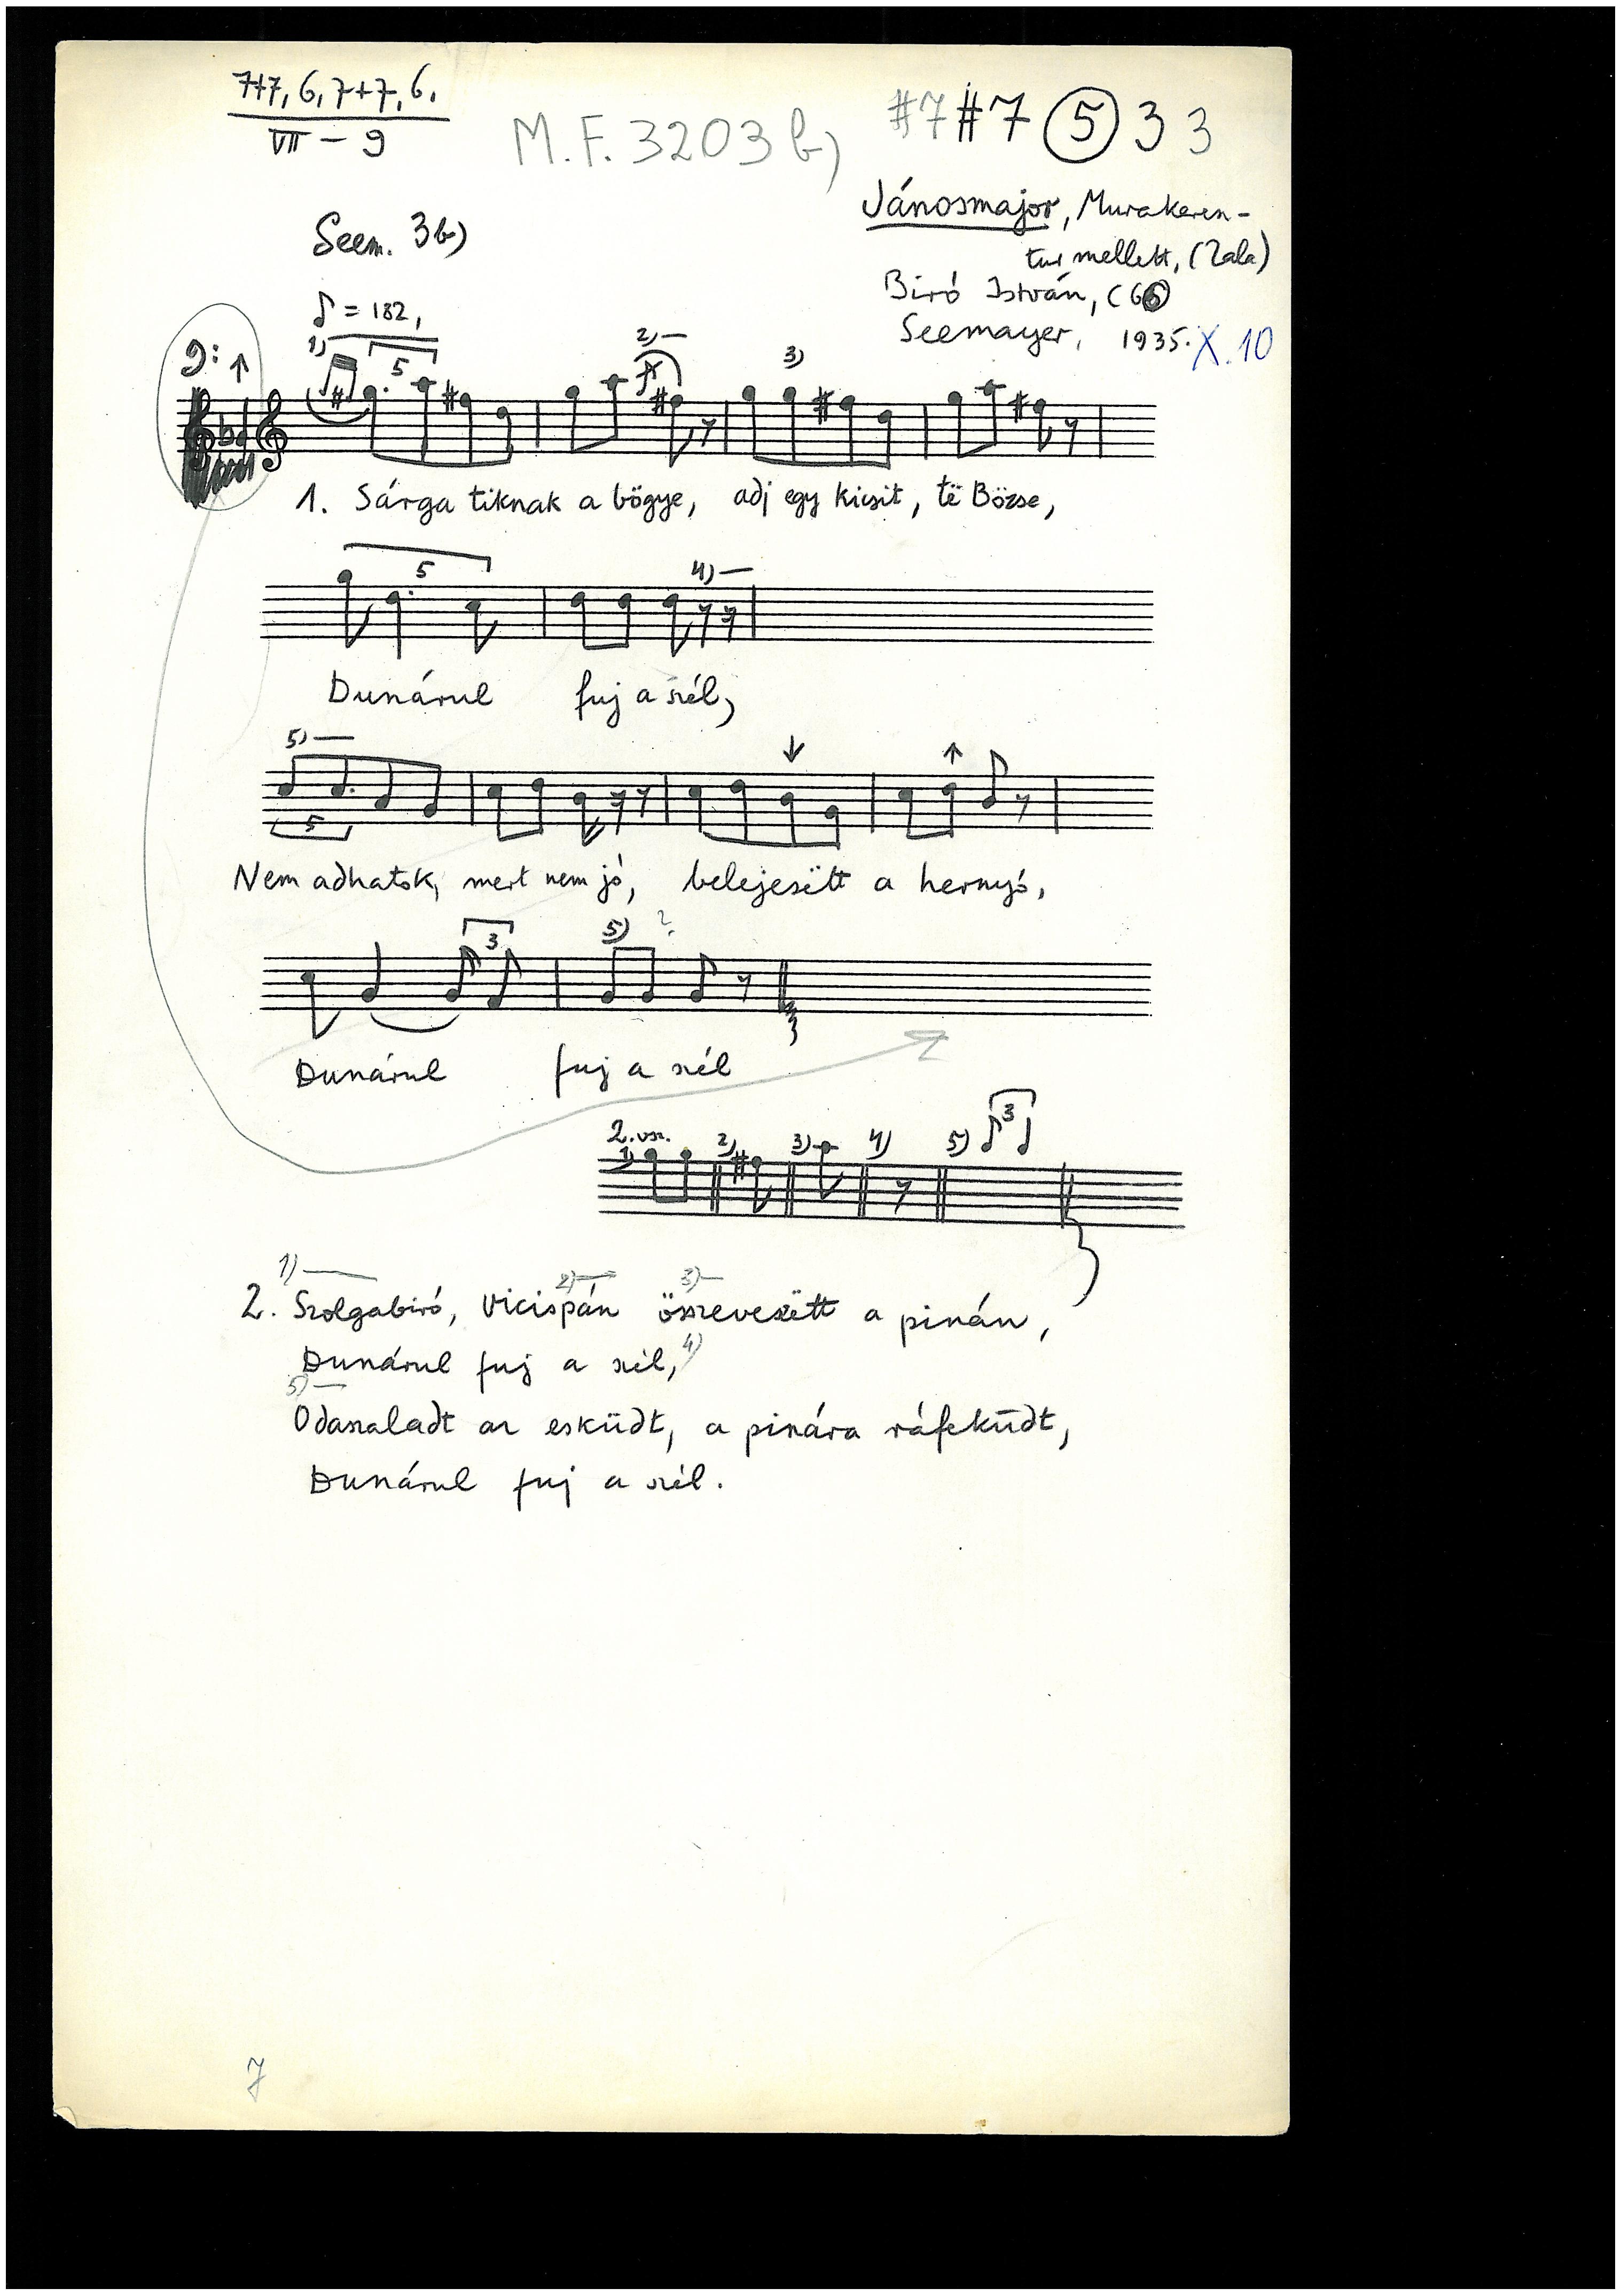 7+7, 6, 7+7, 6.
VII – 9
M.F. 3203 b)
#7 #7 5 3 3
Jánosmajor, Murakeren-
tur mellett, (Zala)
Seem. 3b)
Biró István, (66)
Seemayer, 1935. X. 10
♪ = 182,
9: ↑
1) 5 2) 3)
1. Sárga tiknak a bögye, adj egy kicsit, të Bözse,
5 4)
Dunárul fuj a szél,
5) ↓ ↑
5
Nem adhatok, mert nem jó, belejesëtt a hernyó,
3 5) ?
Dunárul fuj a szél
2. vsz. 3
1) 2) 3) 4) 5)
1) 2) 3)
2. Szolgabiró, vicispán összeveszëtt a pinán,
Dunárul fuj a szél, 4)
5)
Odaszaladt az esküdt, a pinára ráfeküdt,
Dunárul fuj a szél.
7